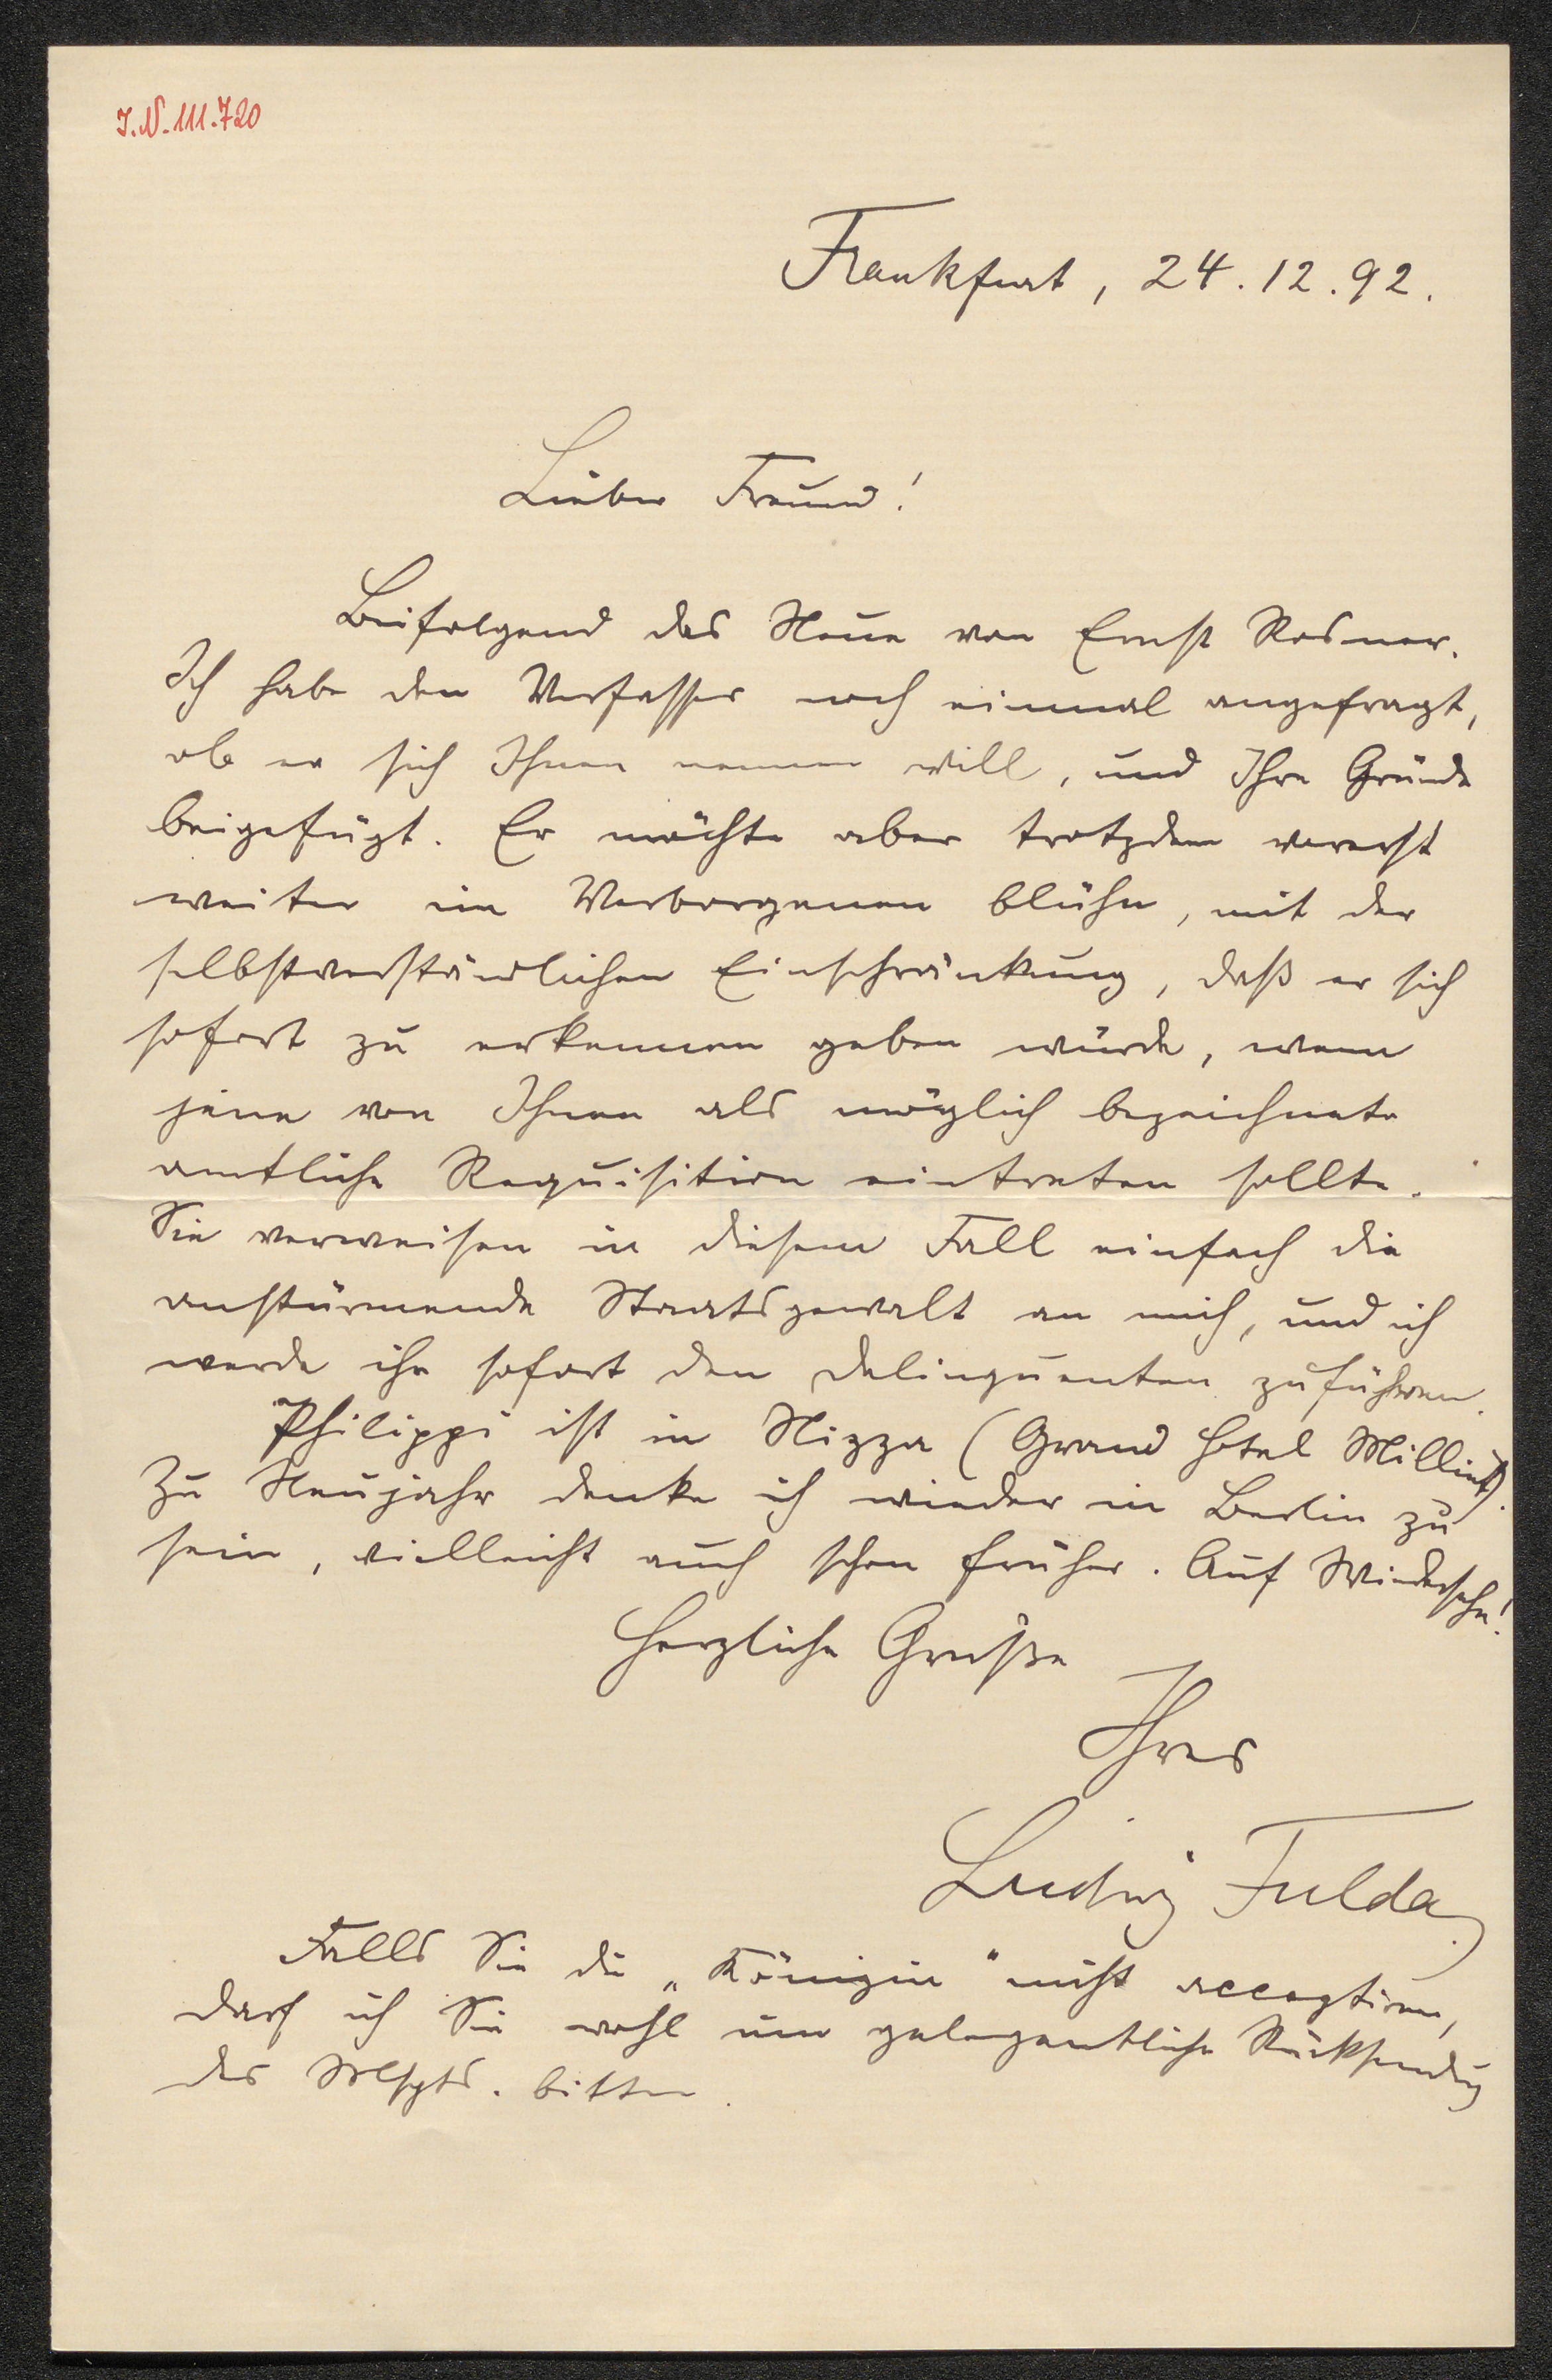 I.N. 111.720
Frankfurt, 24.12.92.
Lieber Freund!
Beifolgend das Neue von Ernst Rosmer.
Ich habe den Verfasser noch einmal angefragt,
ob er sich Ihnen nennen will, und Ihre Gründe
beigefügt. Er möchte aber trotzdem vorerst
weiter im Verborgenen blühn, mit der
selbstverständlichen Einschränkung, daß er sich
sofort zu erkennen geben würde, wenn
jene von Ihnen als möglich bezeichnete
amtliche Requisition eintreten sollte.
Sie verweisen in diesem Fall einfach die
anstürmende Staatsgewalt an mich, und ich
werde ihr sofort den Delinquenten zuführen.
Philippi ist in Nizza (Grand Hotel Milliet).
Zu Neujahr denke ich wieder in Berlin zu
sein, vielleicht auch schon früher. Auf Wiedersehn!
Herzliche Grüße
Ihres
Ludwig Fulda.
Falls Sie die „Königin“ nicht acceptiren,
darf ich Sie wohl um gelegentliche Rücksendung
des Mspts. bitten.